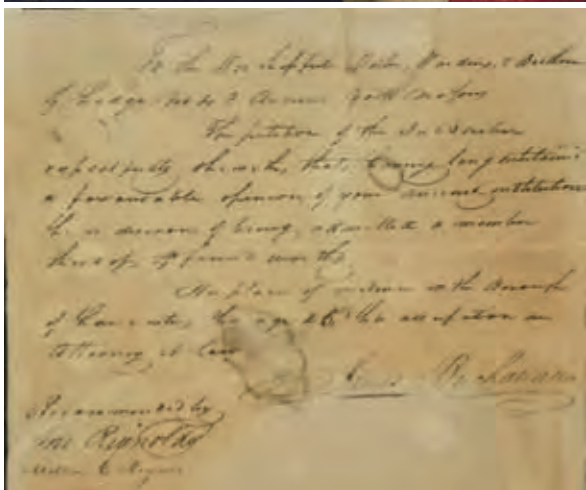 To the Worshipful Master, Wardens, & Brethren
of Lodge No 43 Ancient York Masons
The petition of the Subscriber
respectfully sheweth, that, having long entertained
a favourable opinion of your ancient institution
he is desirous of being admitted a member
thereof, if found worthy.
His place of residence is the Borough
of Lancaster, his age 25 his occupation an
Attorney at law
James Buchanan
Recommended by
Jno Reynolds